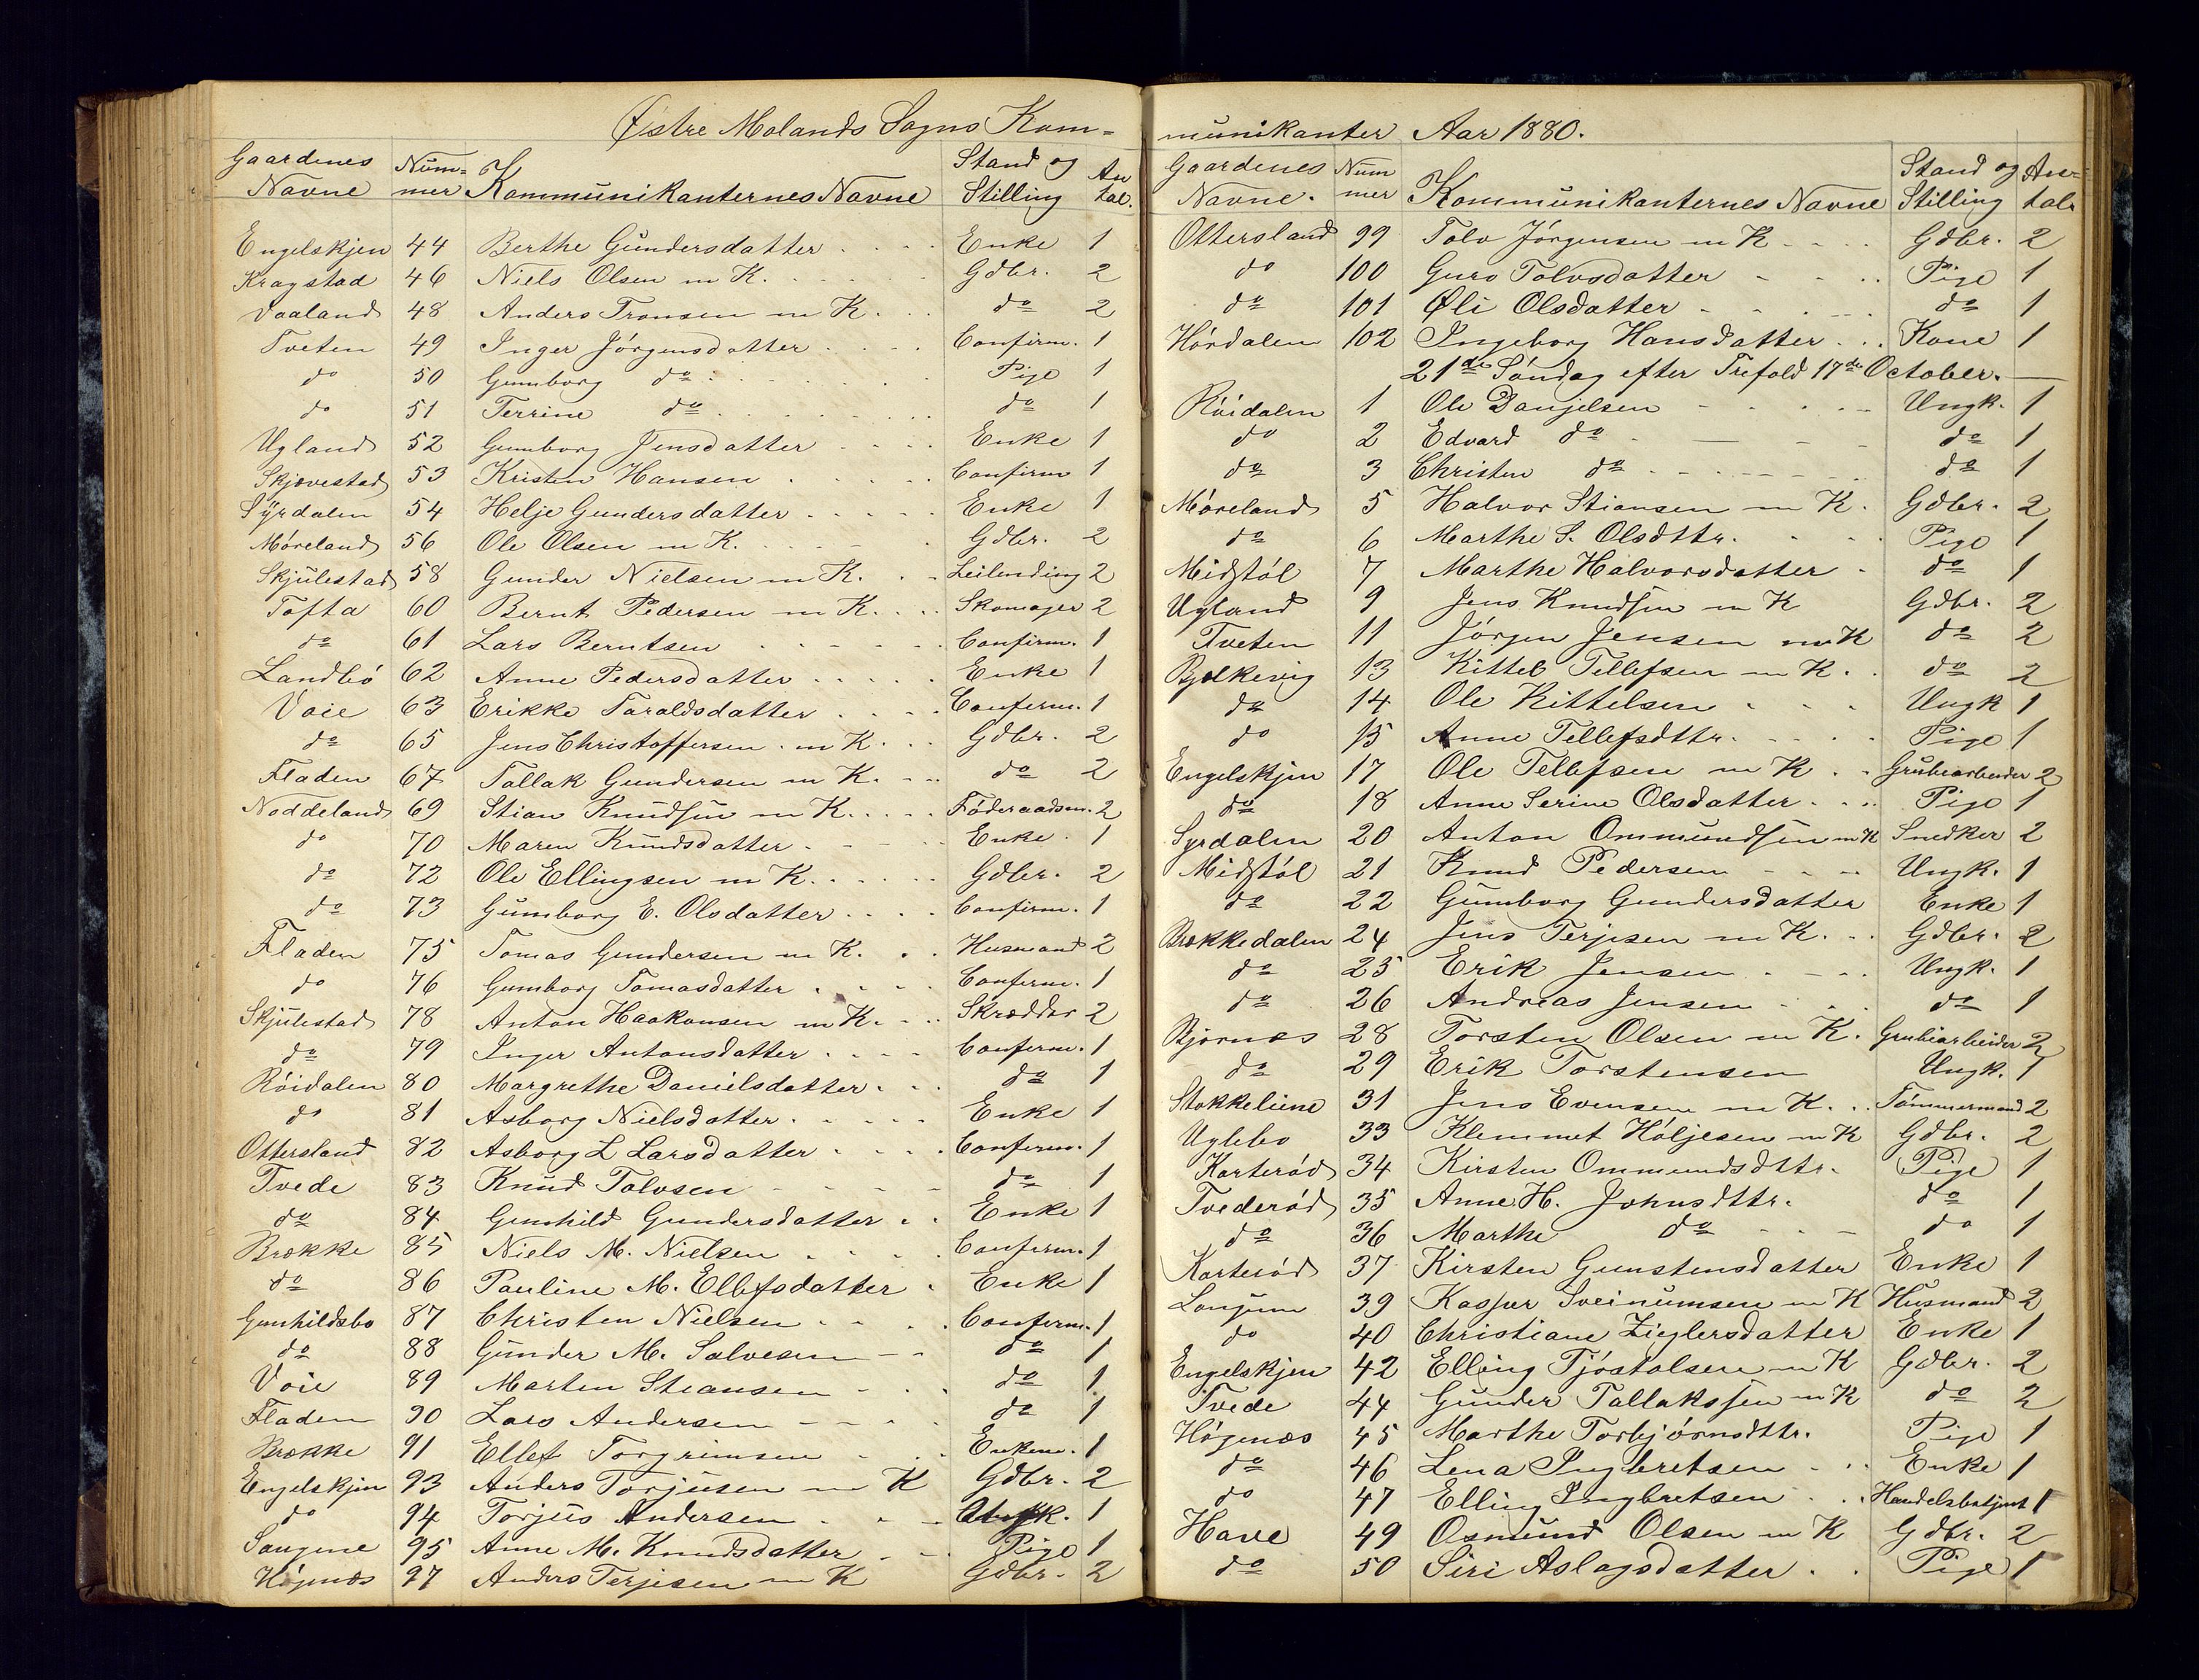 Østre Molands Sogns Kom-
Gaardenes Navne Num-mer Kommunikanternes Navne Stand og Stilling An tal.
Engelskjen 44 Berthe Gundersdatter Enke 1
Kragstad 46 Niels Olsen m K. Gdbr. 2
Vaaland 48 Anders Tronsen m K. do 2
Tveten 49 Inger Jörgensdatter Confirm. 1
do 50 Gumborg do Pige 1
do 51 Terrine do do 1
Ugland 52 Gumborg Jensdatter Enke 1
Skjævestad 53 Kristen Hansen Confirm 1
Syrdalen 54 Helje Gundersdatter Enke 1
Möreland 56 Ole Olsen m K. Gdbr. 2
Skjulestad 58 Gunder Nielsen m K. Leilending 2
Tofta 60 Bernt Pedersen m K. Skomager 2
do 61 Lars Berntsen Confirm. 1
Landbö 62 Anne Pedersdatter Enke 1
Voie 63 Erikke Taraldsdatter Conferm. 1
do 65 Jens Christoffersen m K. Gdbr. 2
Fladen 67 Tallak Gundersen m K. do 2
Noddeland 69 Stian Knudsen m K. Föderaadsm. 2
do 70 Maren Knudsdatter Enke 1
do 72 Ole Ellingsen m K. Gdbr. 2
do 73 Gumborg E. Olsdatter Confirm. 1
Fladen 75 Tomas Gundersen m K. Husmand 2
do 76 Gumborg Tomasdatter Conferm. 1
Skjulestad 78 Anton Haakonsen m K. Skrædder 2
do 79 Inger Antonsdatter Conferm. 1
Röidalen 80 Margrethe Danielsdatter do 1
do 81 Asborg Nielsdatter Enke 1
Ottersland 82 Asborg L Larsdatter Conferm. 1
Tvede 83 Knud Tolvsen do 1
do 84 Gunhild Gundersdatter Enke 1
Brække 85 Niels M. Nielsen Conferm. 1
do 86 Pauline M. Ellefsdatter Enke 1
Gunhildsbo 87 Christen Nielsen Conferm. 1
do 88 Gunder M. Salvesen do 1
Voie 89 Marten Steansen do 1
Fladen 90 Lars Andersen do 1
Brække 91 Ellef Torgrimsen Enkem. 1
Engelskjen 93 Anders Torjusen m K Gdbr. 2
do 94 Torjus Andersen Ungk. 1
Saugene 95 Anne M. Knudsdatter Pige 1
Högnæs 97 Anders Terjesen m K Gdbr. 2
munikanter Aar 1880.
Gaardenes Navne. Num mer Kommunikanternes Navne Stand og Stilling An-tal.
Ottersland 99 Tolv Jörgensen m K Gdbr. 2
do 100 Guro Tolvsdatter Pige 1
do 101 Øli Olsdatter do 1
Hördalen 102 Ingeborg Hansdatter Kone 1
21de Söndag efter Trefold 17de October.
Röidalen 1 Ole Danjelsen Ungk. 1
do 2 Edvard do do 1
do 3 Christen do do 1
Möreland 5 Halvor Stiansen m K. Gdbr. 2
do 6 Marthe S. Olsdttr. Pige 1
Midstöl 7 Marthe Halvorsdatter do 1
Ugland 9 Jens Knudsen m K Gdbr. 2
Tveten 11 Jörgen Jensen m K do 2
Bjelkevig 13 Kittel Tellefsen m K. do 2
do 14 Ole Kittelsen Ungk 1
do 15 Anne Tellefsdttr. Pige 1
Engelskjen 17 Ole Tellefsen m K Grubearbeider 2
do 18 Anne Serine Olsdatter Pige 1
Syrdalen 20 Anton Ommundsen m K Snedker 2
Midstöl 21 Knud Pedersen Ungk. 1
do 22 Gumborg Gundersdatter Enke 1
Brækkedalen 24 Jens Terjesen m K. Gdbr. 2
do 25 Erik Jensen Ungk. 1
do 26 Andreas Jensen do 1
Bjornæs 28 Torsten Olsen m K. Grubearbeider 2
do 29 Erik Torstensen Ungk. 1
Stokkeliene 31 Jens Evensen m K. Tömmermand 2
Uglebo 33 Klemmet Höljesen m K Gdbr. 2
Karteröd 34 Kirsten Ommundsdttr. Pige 1
Tvederöd 35 Anne H. Johnsdttr. do 1
do 36 Marthe do do 1
Karteröd 37 Kirsten Gunstensdatter Enke 1
Longum 39 Kasper Sveinumsen m K Husmand 2
do 40 Christiane Zieglersdatter Enke 1
Engelskjen 42 Elling Tjöstolsen m K Gdbr. 2
Tvede 44 Gunder Tallaksen m K do 2
Högenæs 45 Marthe Torbjörnsdttr. Pige 1
do 46 Lena Ingbretsen Enke 1
do 47 Elling Ingbretsen Handelsbetjent 1
Have 49 Osmund Olsen m K Gdbr. 2
do 50 Siri Aslagsdatter Pige 1